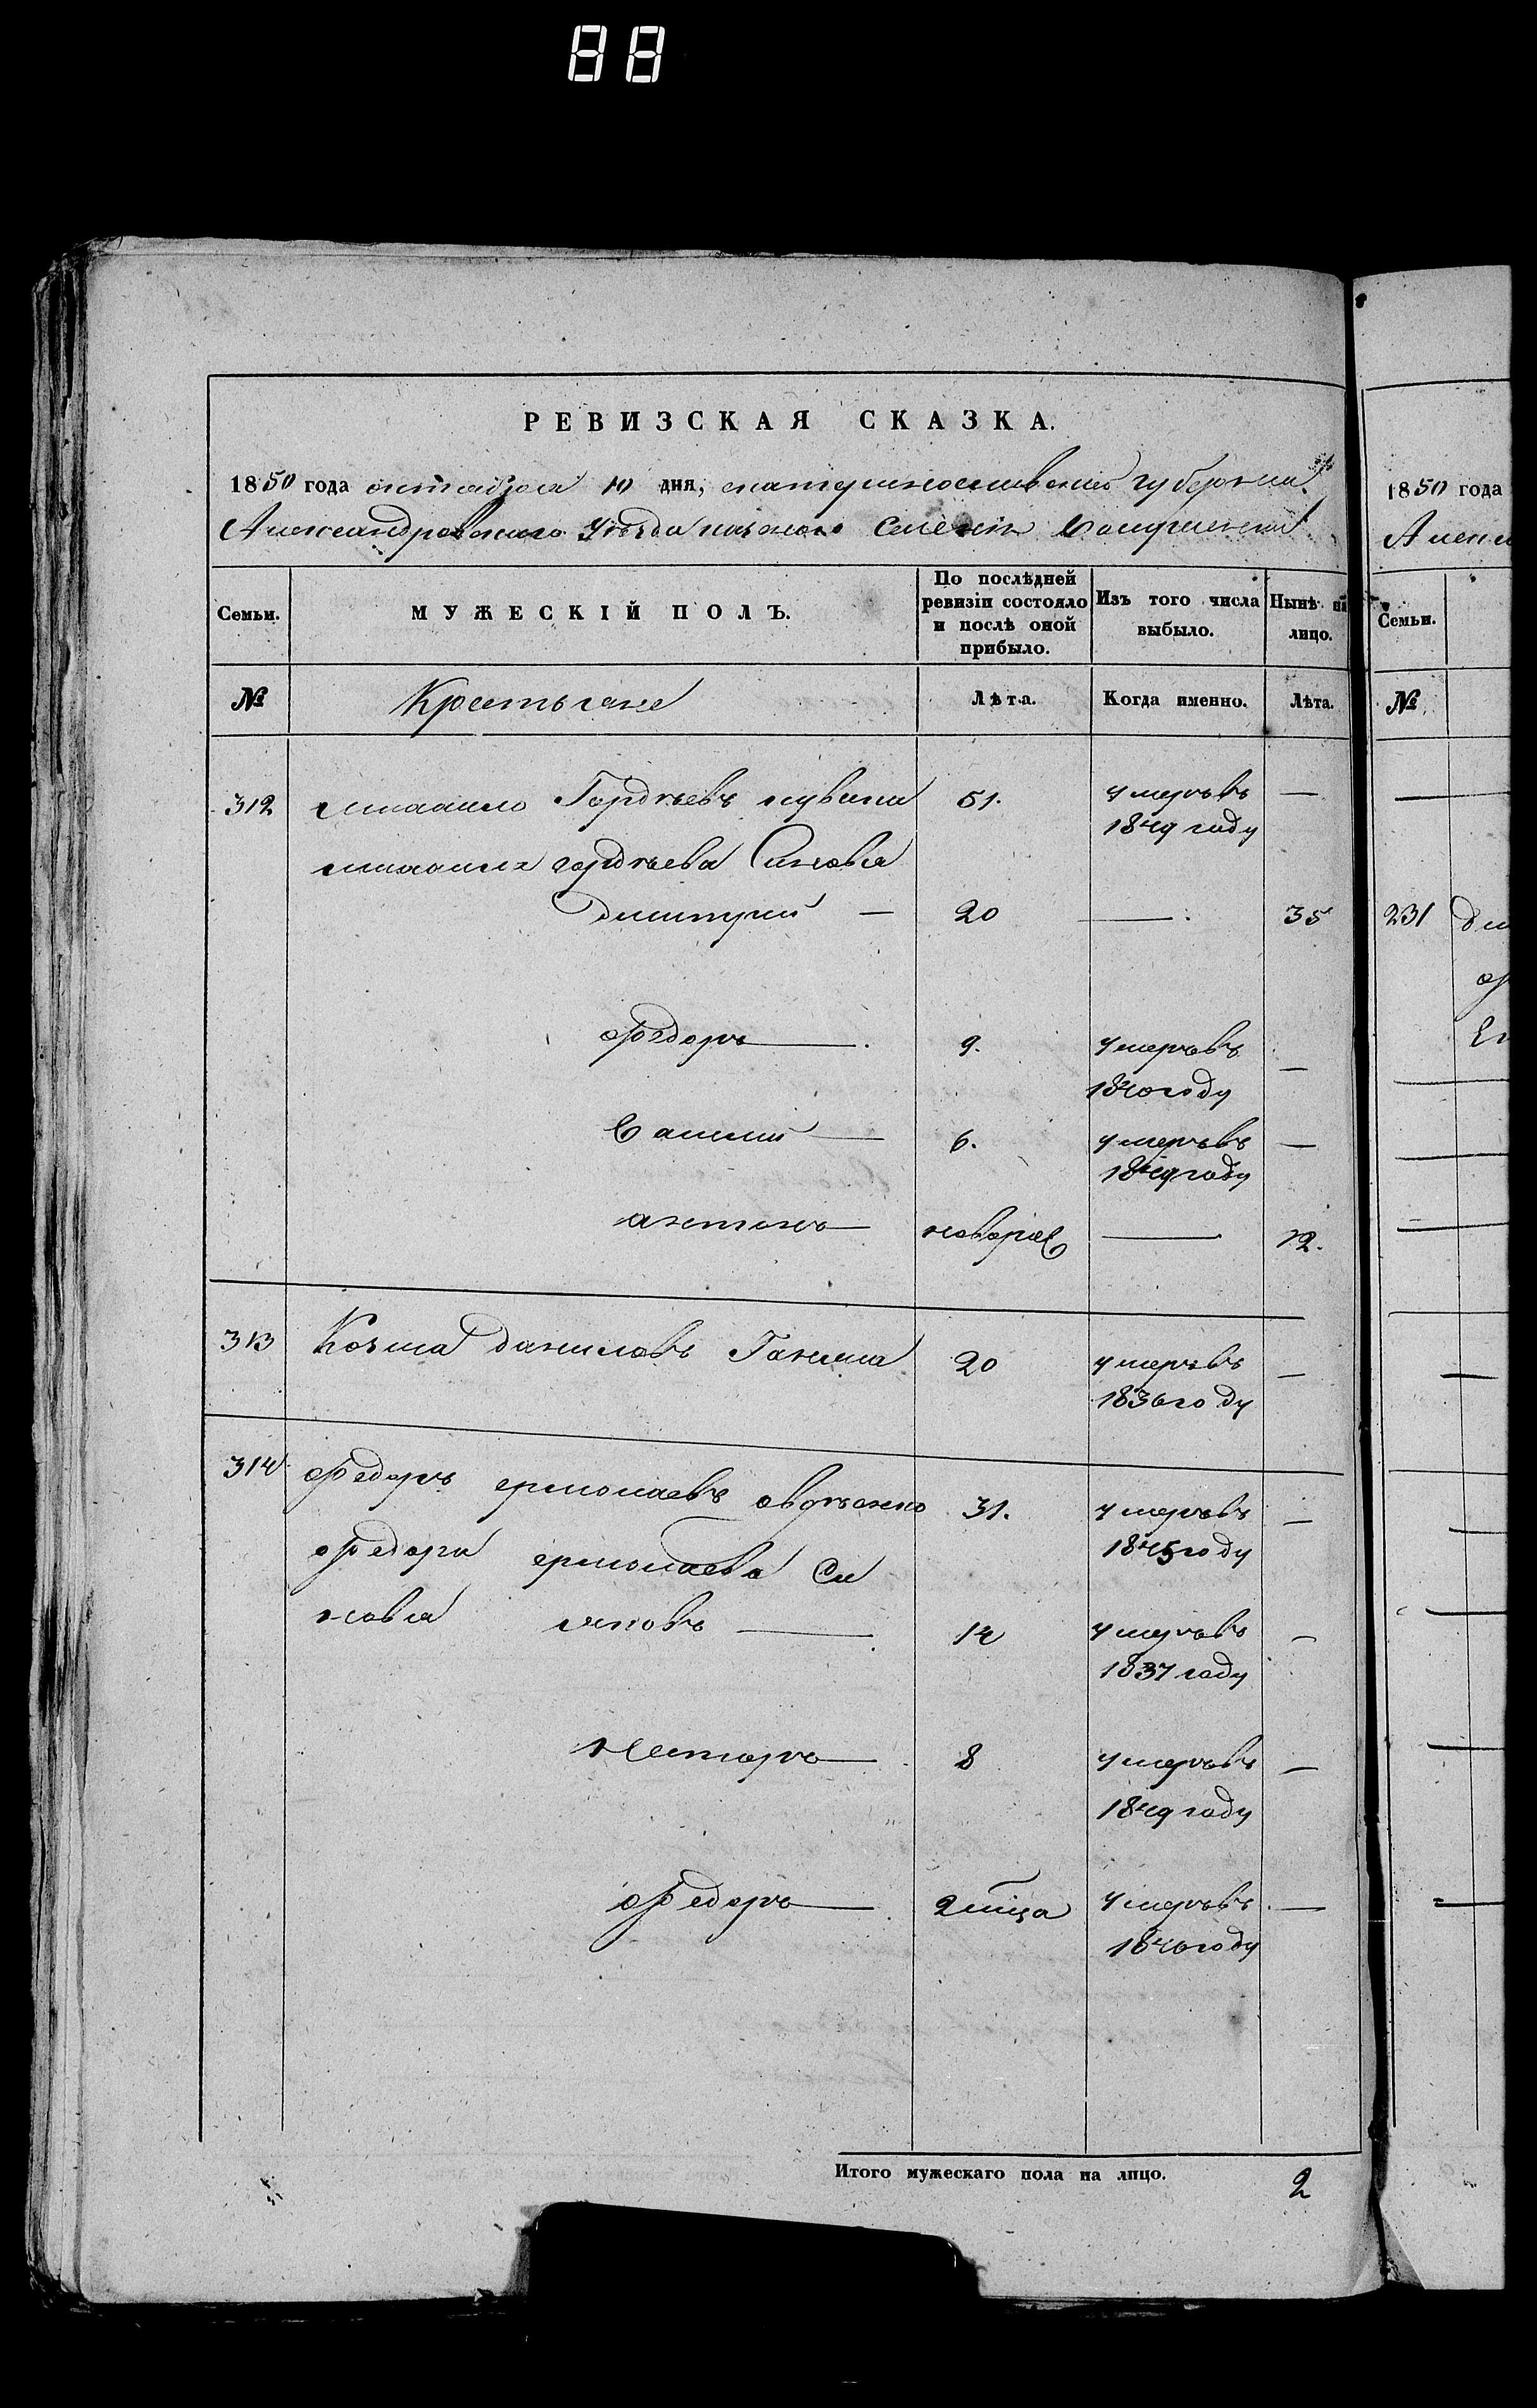 88
РЕВИЗСКАЯ СКАЗКА.
1850 года октабря 10 дня, екатеринославской губернии
Александровского уѣзда казеного Селенія
Семьи.
МУЖЕСКІЙ ПОЛЪ.
По послѣдней ревизіи состояло и послѣ оной прибыло.
Изъ того числа выбыло.
Нынѣ на лицо.
№ Крестьяне Лѣта. Когда именно. Лѣта.
312 михаило Гордѣевъ 51. умеръвъ —
1849 году
михаила гордѣева Синовья
димитрий — 20 — 35
федоръ — 9. умеръвъ —
1840 году
Василий — 6. умеръвъ —
1849 году
антонъ — новорож — 12.
313 Козма даниловъ Ганжа 20 умеръвъ —
1836 году
314 федоръ ермолаевъ 31. умеръвъ —
1845 году
федора ермолаева Си
новья яковъ — 14 умеръвъ —
1837 году
Несторъ — 8 умеръвъ —
1849 году
федоръ — 2 мца умеръвъ —
1840 году
Итого мужескаго пола на лицо. 2
1850 года
Алекс
Семьи.
№
231